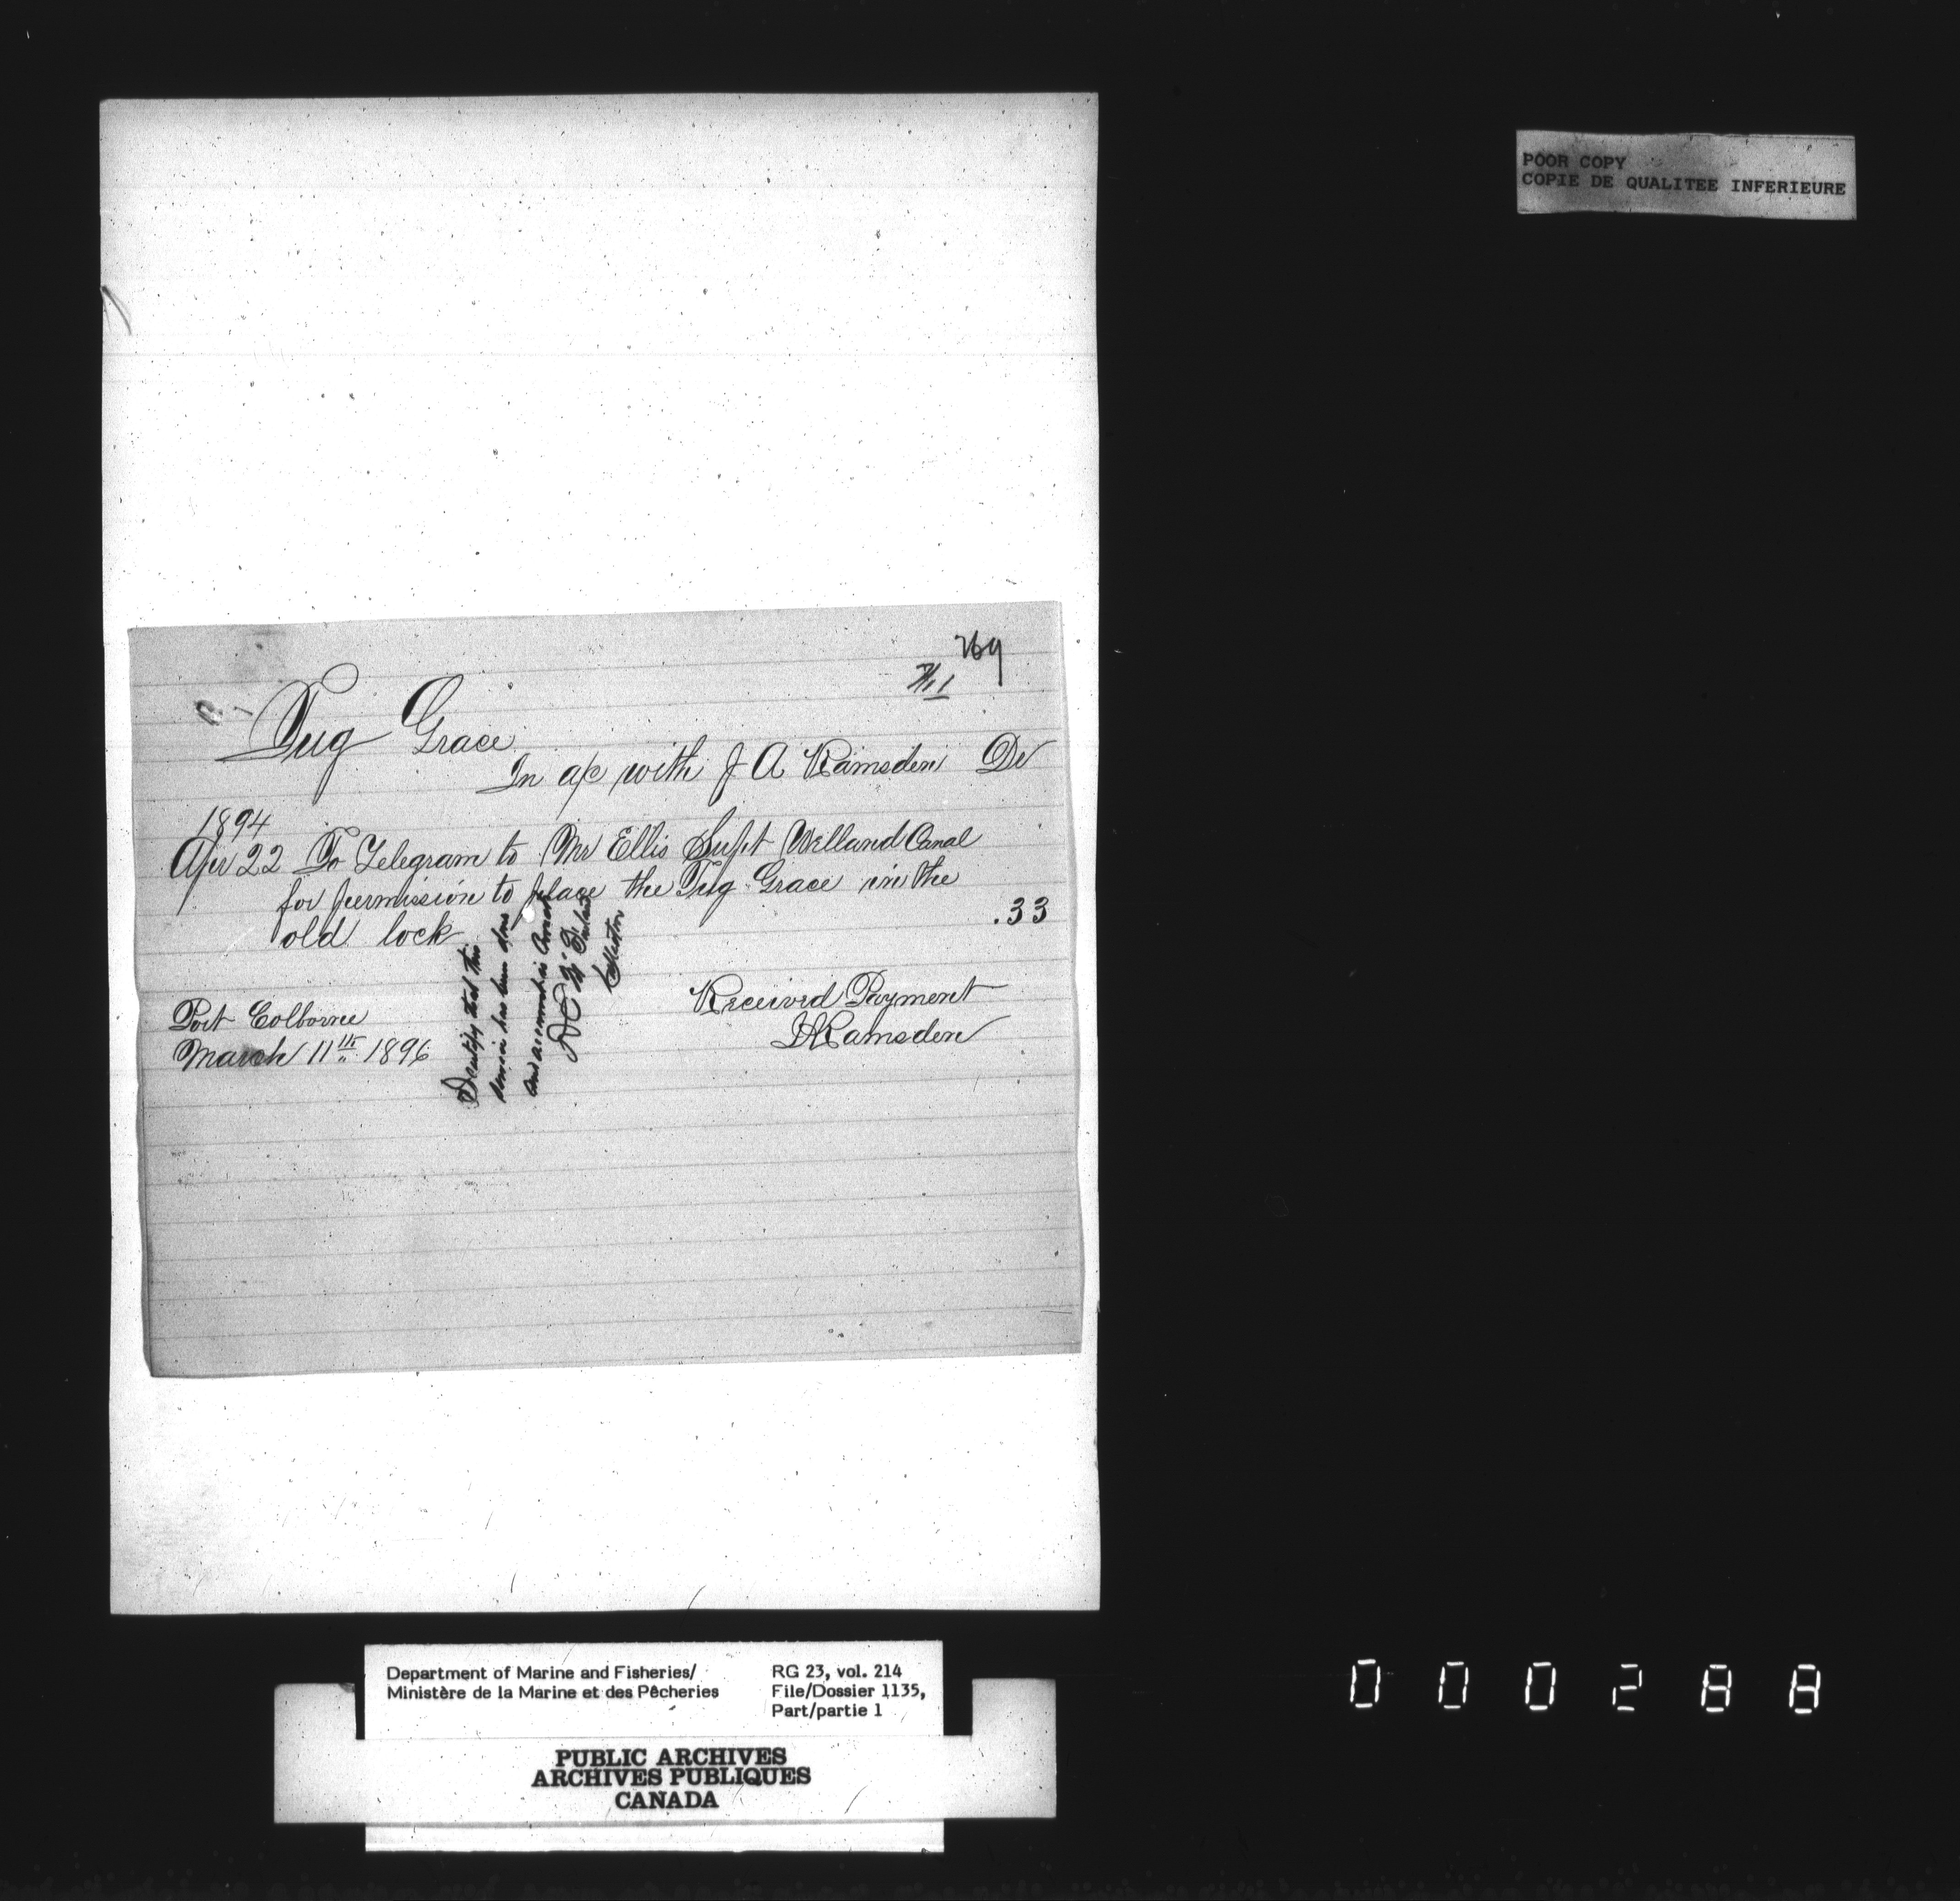 POOR COPY
COPIE DE QUALITEE INFERIEURE
769
Tug Grace
In a/c with J A Ramsden Dr
1894
Apr 22 To Telegram to Mr Ellis Supt Welland Canal
for permission to place the Tug Grace in the
old lock .33
I certify that this
service has been done
and account is correct
Collector
Received Payment
JARamsden
Port Colborne
March 11th 1896
Department of Marine and Fisheries/
Ministère de la Marine et des Pêcheries
RG 23, vol. 214
File/Dossier 1135,
Part/partie 1
PUBLIC ARCHIVES
ARCHIVES PUBLIQUES
CANADA
000288